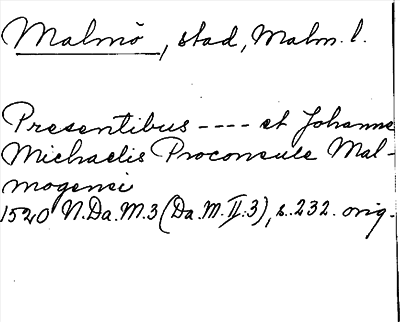 Malmö, stad, Malm. l.
Presentibus ---- et Johanne
Michaelis Proconsule Mal-
mogensi
1520 N.Da.M.3 (Da.M.II:3), s. 232. orig.